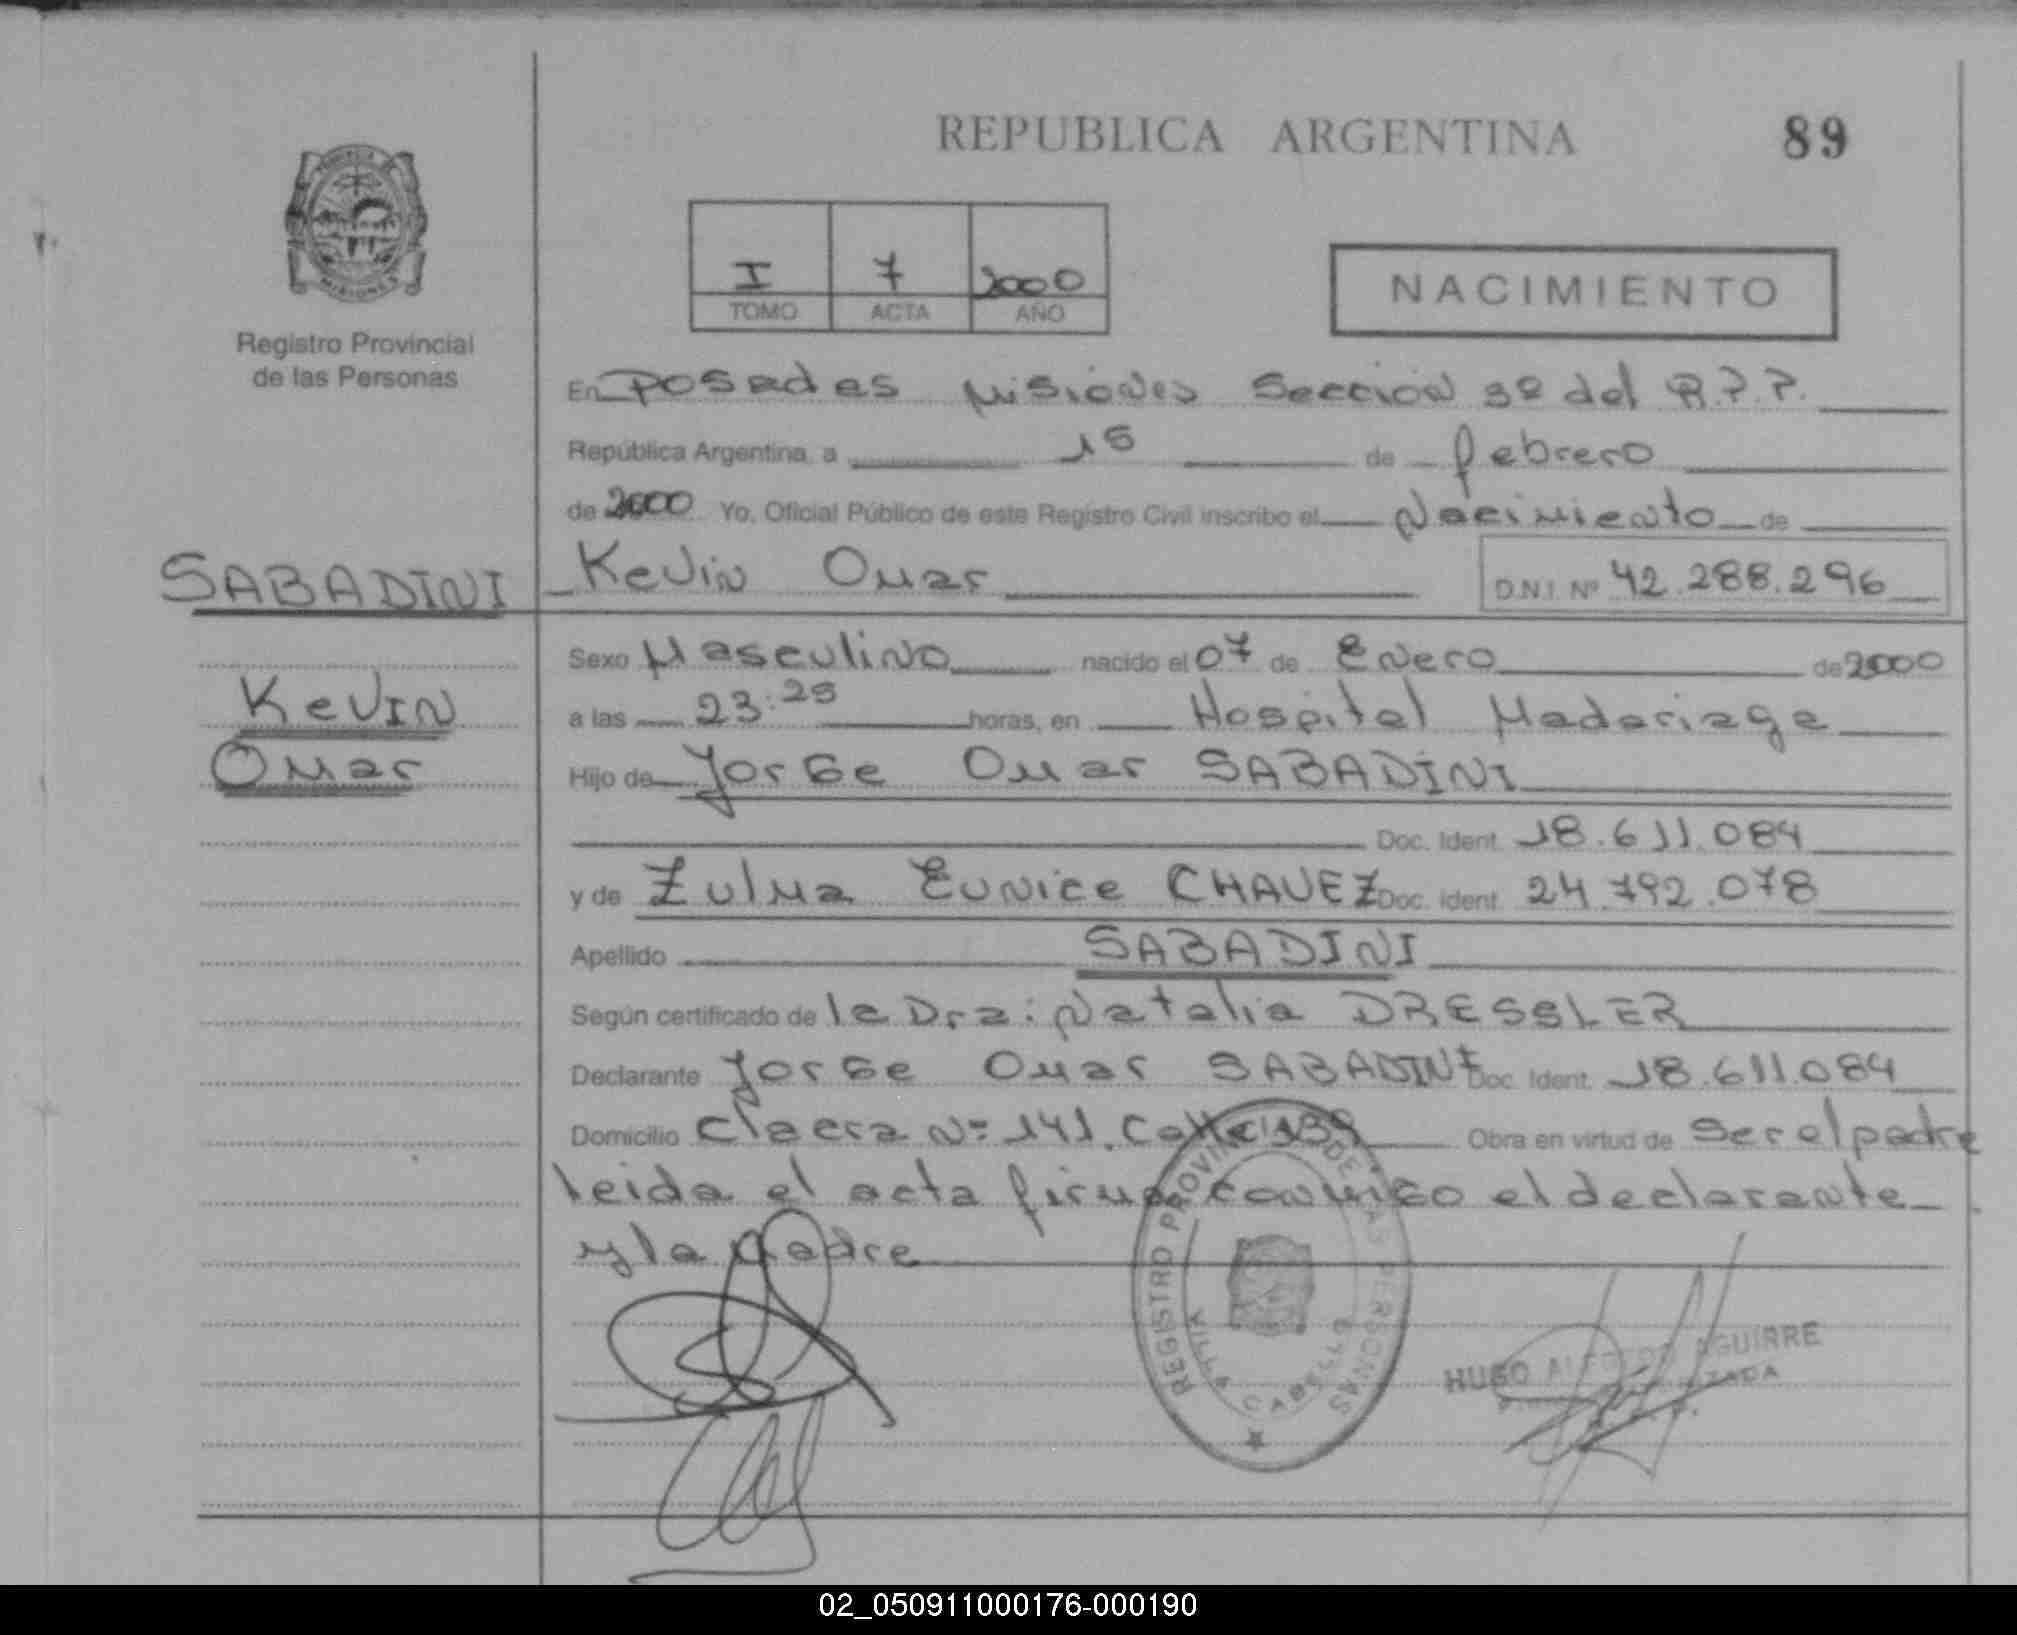 REPUBLICA ARGENTINA 89
MISIONES
Registro Provincial
de las Personas
I 7 2000
TOMO ACTA AÑO
NACIMIENTO
En Posadas Misiones Sección 3º del R.P.P.
República Argentina, a 15 de febrero
de 2000 Yo, Oficial Público de este Registro Civil inscribo el Nacimiento de
SABADINI Kevin Omar D.N.I. Nº 42.288.296
Sexo Masculino nacido el 07 de Enero de 2000
KeVIN
a las 23:25 horas, en Hospital Madariaga
Omar
Hijo de Jorge Omar SABADINI
Doc. Ident. 18.611.084
y de Zulma Eunice CHAVEZ Doc. Ident. 24.792.078
Apellido SABADINI
Según certificado de la Dra: Natalia DRESSLER
Declarante Jorge Omar SABADINI Doc. Ident. 18.611.084
Domicilio Nº 141. Obra en virtud de ser el padre
leida el acta firma conmigo el declarante
y la madre
REGISTRO PROVINCIAL DE LAS PERSONAS
VILLA CABELLO
HUGO ALFREDO AGUIRRE
02_050911000176-000190